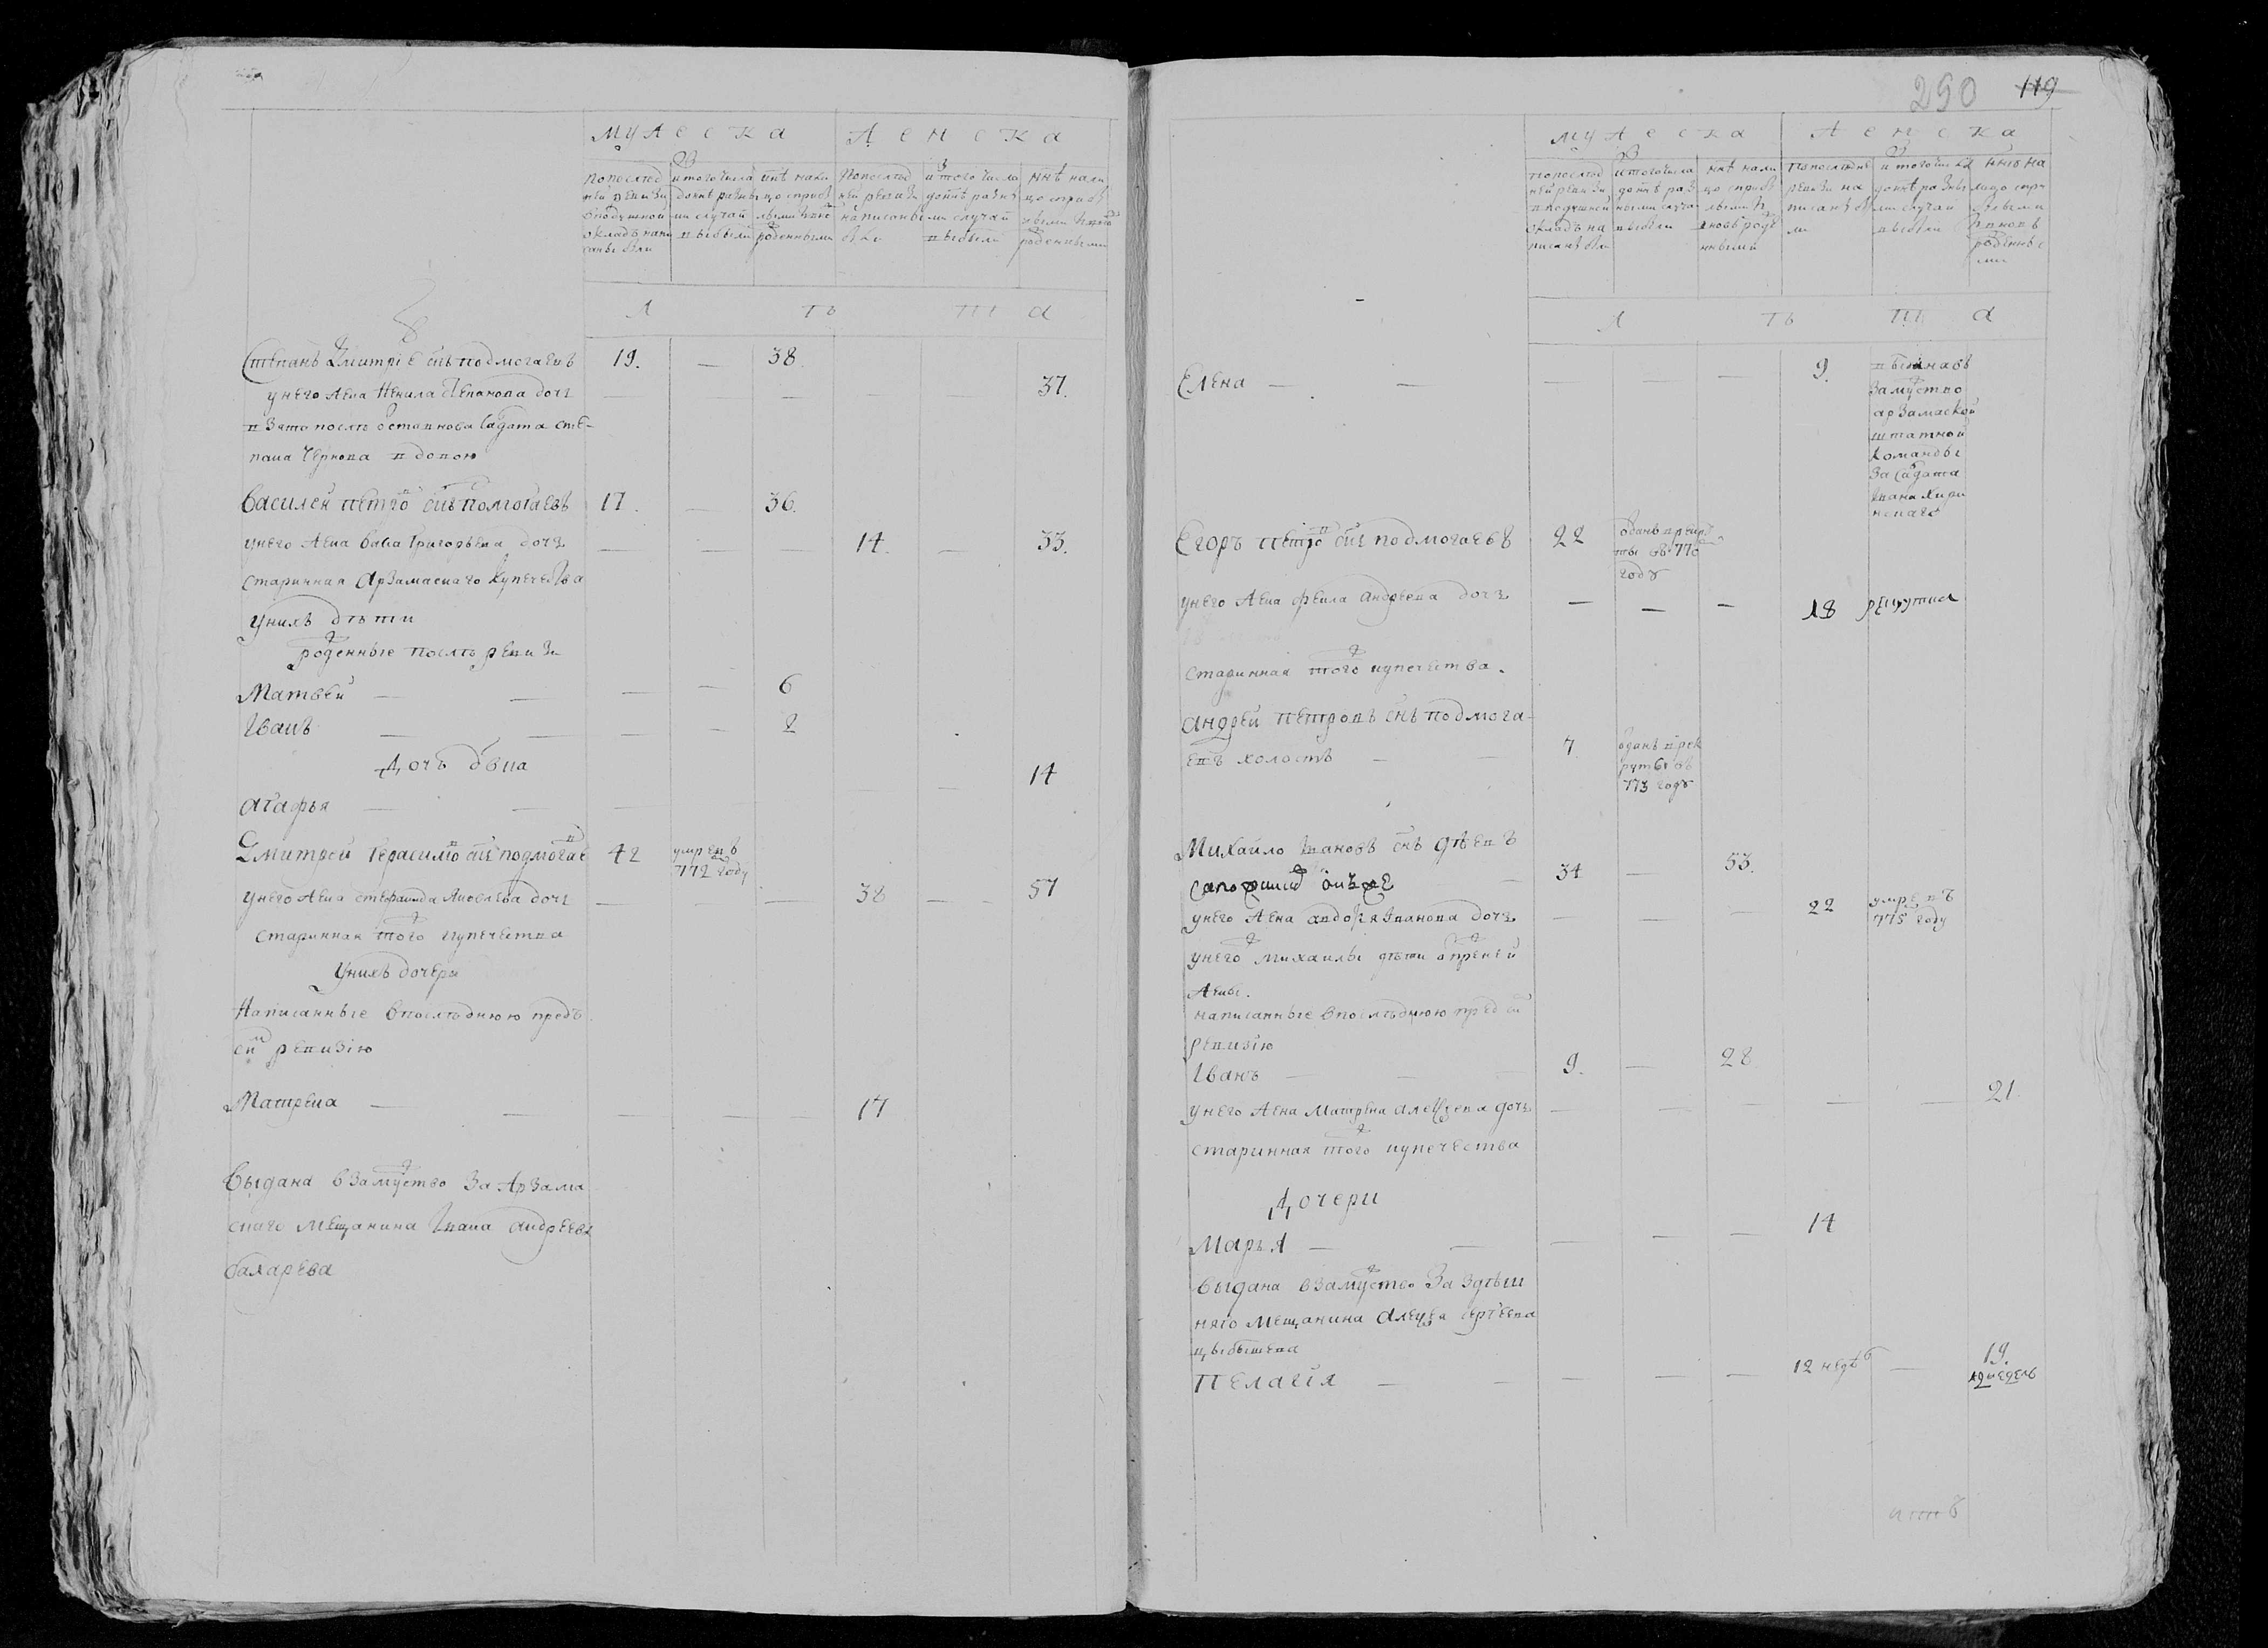 мужеска женска
по послед
ней ревизи
в подушной
окладъ напи
саны были
ис того числа
до ннѣ разны
ми случаи
выбыли
ннѣ нали
цо с прибы
лыми и вно
рожденными
По послед
ней ревизи
написаны
были
ис того числа
до ннѣ разны
ми случаи
выбыли
ннѣ нали
цо с прибы
лыми и вно
рожденными
Л ѣ т а
Степанъ Дмитріе снъ подмогаевъ 19. — 38
у него жена Ненила Степанова дочь — — — 37.
взята послѣ оставнова салдата сте-
пана Чернова вдовою
Василей петро снъ помогаевъ 17. — 36.
у него жена Григорьева дочь — — 14. — 33.
старинная Арзамаскаго купечества
у нихъ дѣти
рожденные послѣ ревизи
Матвей — — — — 6
Иванъ — — — — 2
дочь двка 14
агафья — — — — —
Дмитрей герасимо снъ подмогае 42 умре в
772 году
у него жена степанида Яковлева дочь — — — 38 — — 57
старинная того купечества
у нихъ дочери
Написанные в последнюю предъ
сим ревизию
Матрена — — — — — 17
выдана в замуство за Арзама
скаго мещанина Ивана андреева
бахарева
290 119
мужеска женска
по послед
ней ревизи
в подушной
окладъ на
писаны были
ис того числа
до ннѣ раз
ными случа
выбыли
ннѣ нали
цо с прибы
лыми и
вновь роде
нными
По последне
ревизи на
писаны бы
ли
ис того числа
до ннѣ разны
ми случаи
выбыли
ннѣ на
лицо с при
былыми
и вновь
рожденны
ми
Л ѣ т а
Елена — — — — — 9. выдана въ
замуство
арзамаской
штатной
команды
за салдата
Ивана
Егоръ петро снъ подмогаевъ 22 отданъ в рекру
ты въ 770
году
у него жена Андреева дочь — — — 18 рекрутка
старинная того купечества.
андрей петровъ снъ подмога-
евъ холостъ — — 7 отданъ в рек
руты въ
773 году
Михайло Ивановъ снъ
— 34 — 53.
у него жена авдотя Иванова дочь — — — 22 умре въ
775 году
у него михаилы дѣти с прежней
жены.
написанные в последнюю пред сим
ревизію
Иванъ — — — 9. — 28
у него жена Матрена алексеева дочь — — — — — 21.
старинная того купечества
Дочери
Марья — — — — — 14
выдана в замуство за здѣш
няго мещанина алексея сергеева
цыбышева
Пелагія — — — — — 12 недѣ — 19.
12 недель